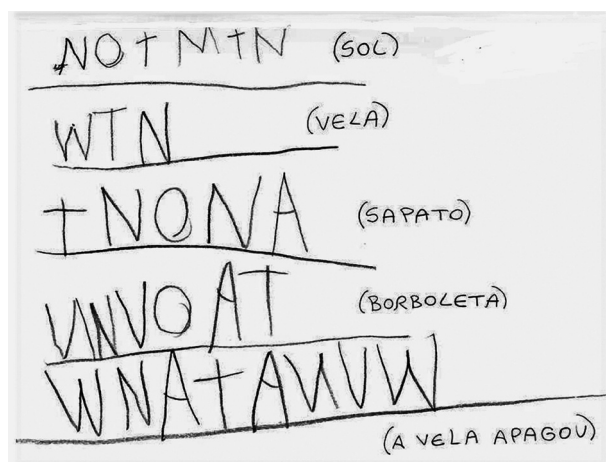 NOTMTN (SOL)
WTN (VELA)
TNONA (SAPATO)
UNVOAT (BORBOLETA)
WNATAVUVW
(A VELA APAGOU)